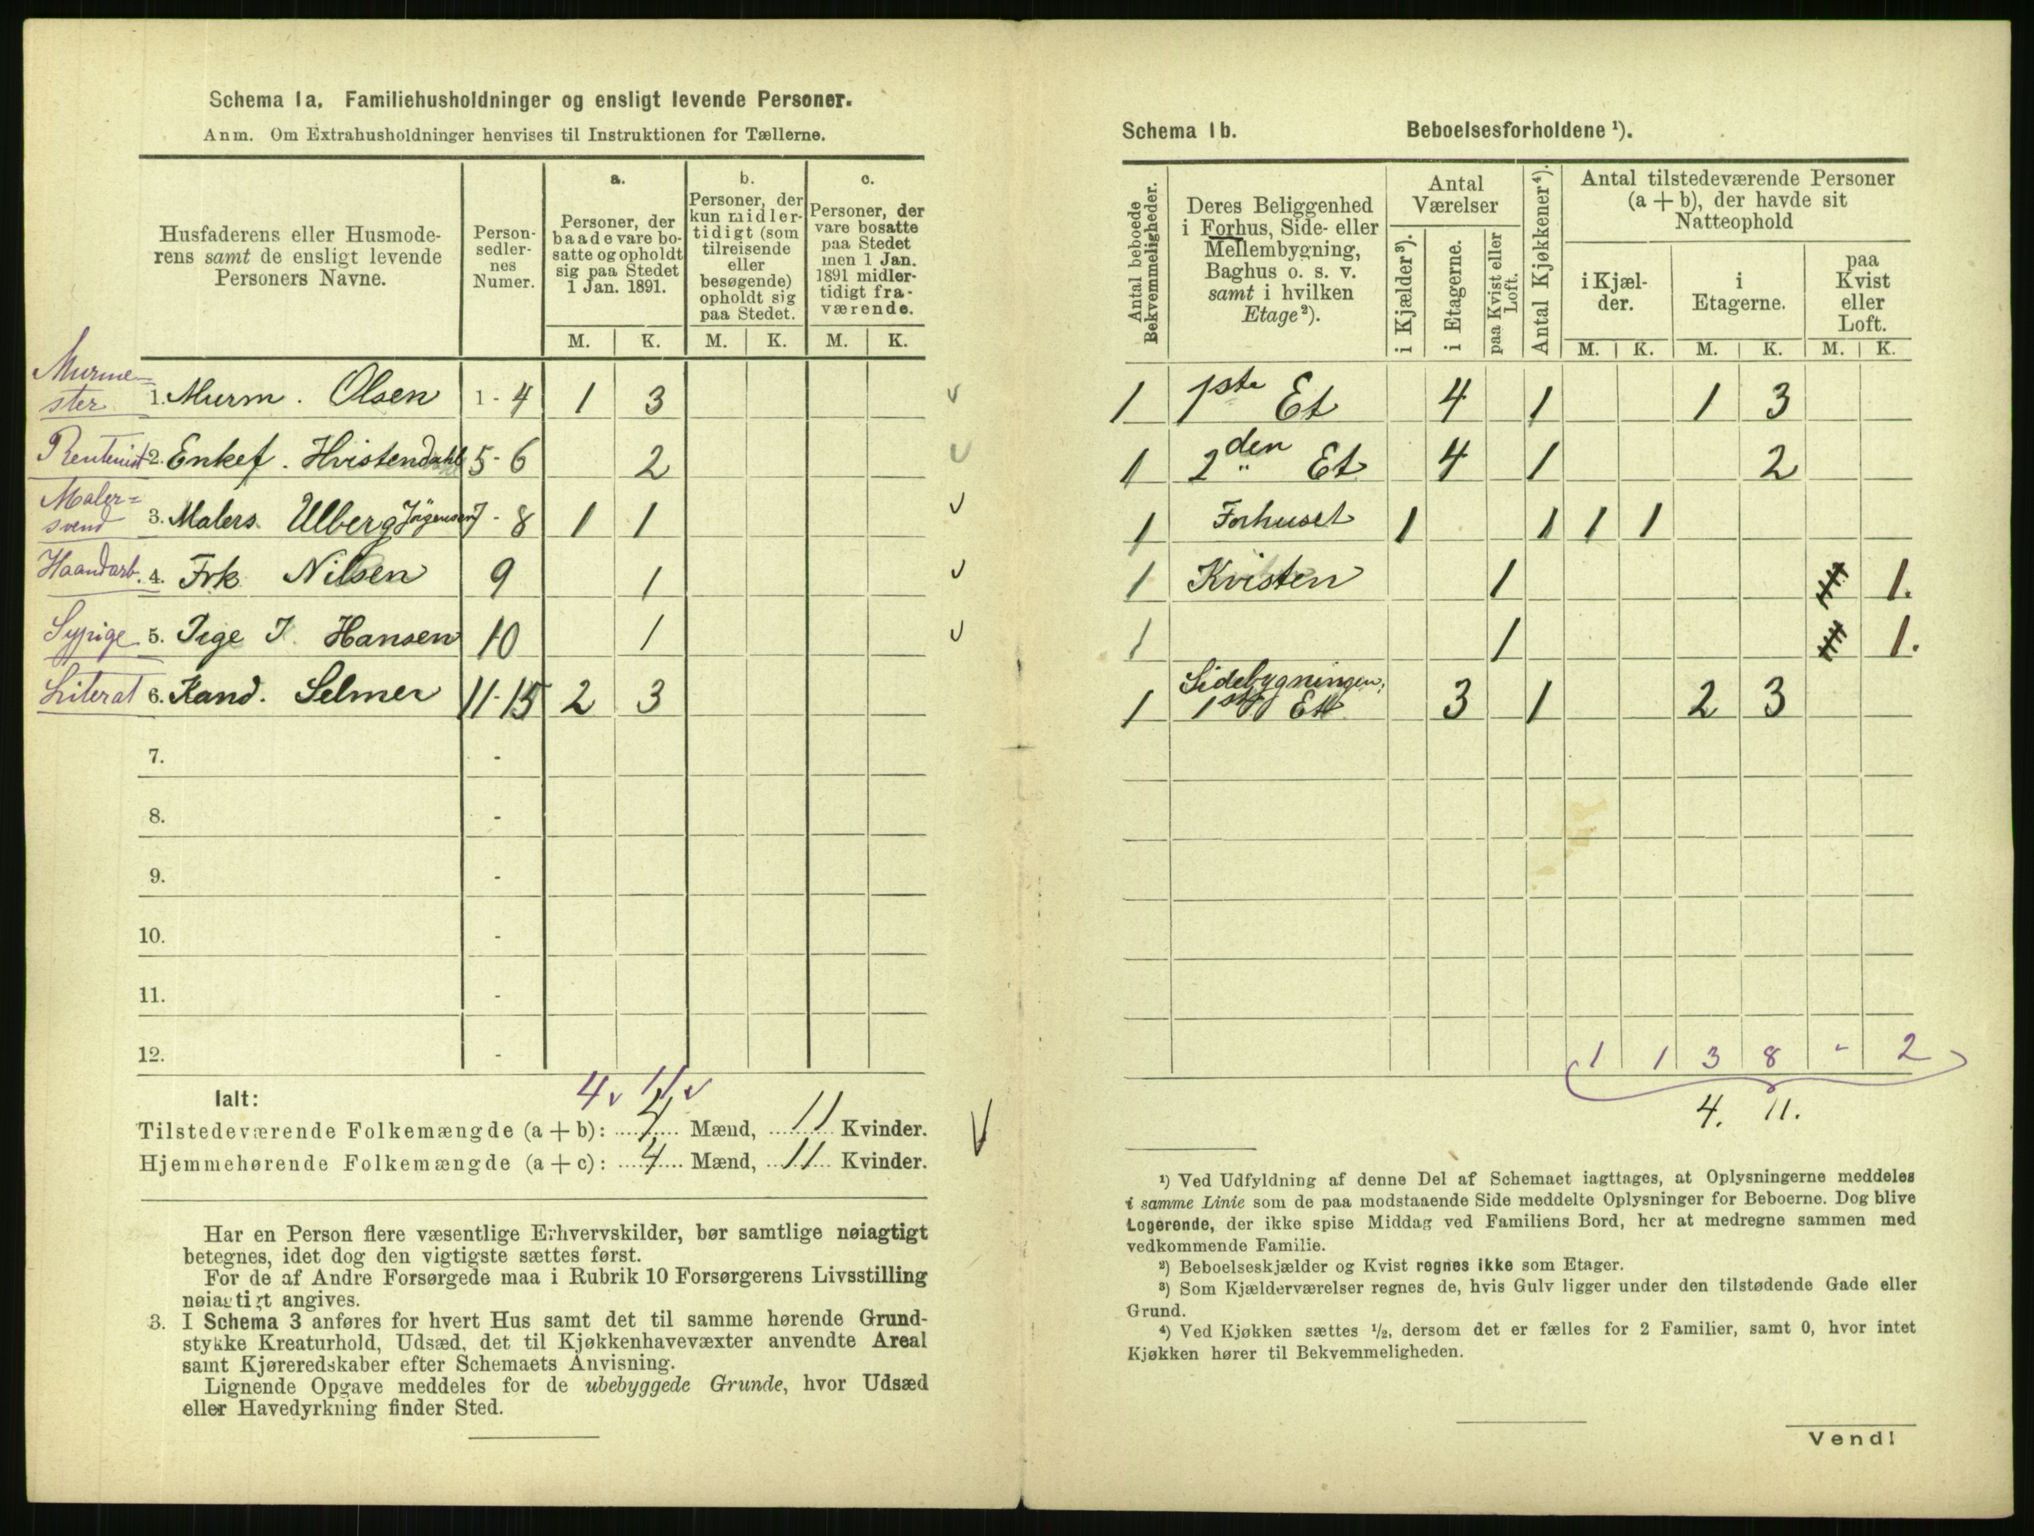 Schema 1a. Familiehusholdninger og ensligt levende Personer.
Anm. Om Extrahusholdninger henvises til Instruktionen for Tællerne.
Husfaderens eller Husmode-
rens samt de ensligt levende
Personers Navne.
Person-
sedler-
nes
Numer.
a.
Personer, der
baade vare bo-
satte og opholdt
sig paa Stedet
1 Jan. 1891.
b.
Personer, der
kun midler-
tidigt (som
tilreisende
eller
besøgende)
opholdt sig
paa Stedet.
c.
Personer, der
vare bosatte
paa Stedet
men 1 Jan.
1891 midler-
tidigt fra-
værende.
M. K. M. K. M. K.
Murme-
ster 1. Murm. Olsen 1-4 1 3
Rentenist 2. Enkef. Hvistendahl 5-6 2
Maler=
svend 3. Malers. Ulberg Jørgensen 7-8 1 1
Haandarb. 4. Frk Nilsen 9 1
Sypige 5. Pige J. Hansen 10 1
Literat 6. Kand. Selmer 11-15 2 3
7. -
8. -
9. -
10. -
11. -
12. -
4 11
Ialt:
Tilstedeværende Folkemængde (a+b): 4 Mænd, 11 Kvinder.
Hjemmehørende Folkemængde (a+c): 4 Mænd, 11 Kvinder.
Har en Person flere væsentlige Erhvervskilder, bør samtlige nøiagtigt
betegnes, idet dog den vigtigste sættes først.
For de af Andre Forsørgede maa i Rubrik 10 Forsørgerens Livsstilling
nøiagtigt angives.
3. I Schema 3 anføres for hvert Hus samt det til samme hørende Grund-
stykke Kreaturhold, Udsæd, det til Kjøkkenhavevæxter anvendte Areal
samt Kjøreredskaber efter Schemaets Anvisning.
Lignende Opgave meddeles for de ubebyggede Grunde, hvor Udsæd
eller Havedyrkning finder Sted.
Schema 1b. Beboelsesforholdene ¹).
Antal beboede
Bekvemmeligheder.
Deres Beliggenhed
i Forhus, Side- eller
Mellembygning,
Baghus o. s. v.
samt i hvilken
Etage²).
Antal
Værelser
i Kjælder³).
i Etagerne.
paa Kvist eller
Loft.
Antal Kjøkkener⁴).
Antal tilstedeværende Personer
(a + b), der havde sit
Natteophold
i Kjæl-
der.
i
Etagerne.
paa
Kvist
eller
Loft.
M. K. M. K. M. K.
1 1ste Et 4 1 1 3
1 2den Et 4 1 2
1 Forhuset 1 1 1 1
1 Kvisten 1 1.
1 1 1.
1 Sidebygningen,
1ste Et 3 1 2 3
1 1 3 8 - 2
4. 11.
¹) Ved Udfyldning af denne Del af Schemaet iagttages, at Oplysningerne meddeles
i samme Linie som de paa modstaaende Side meddelte Oplysninger for Beboerne. Dog blive
Logerende, der ikke spise Middag ved Familiens Bord, her at medregne sammen med
vedkommende Familie.
²) Beboelseskjælder og Kvist regnes ikke som Etager.
³) Som Kjælderværelser regnes de, hvis Gulv ligger under den tilstødende Gade eller
Grund.
⁴) Ved Kjøkken sættes ½, dersom det er fælles for 2 Familier, samt 0, hvor intet
Kjøkken hører til Bekvemmeligheden.
Vend!